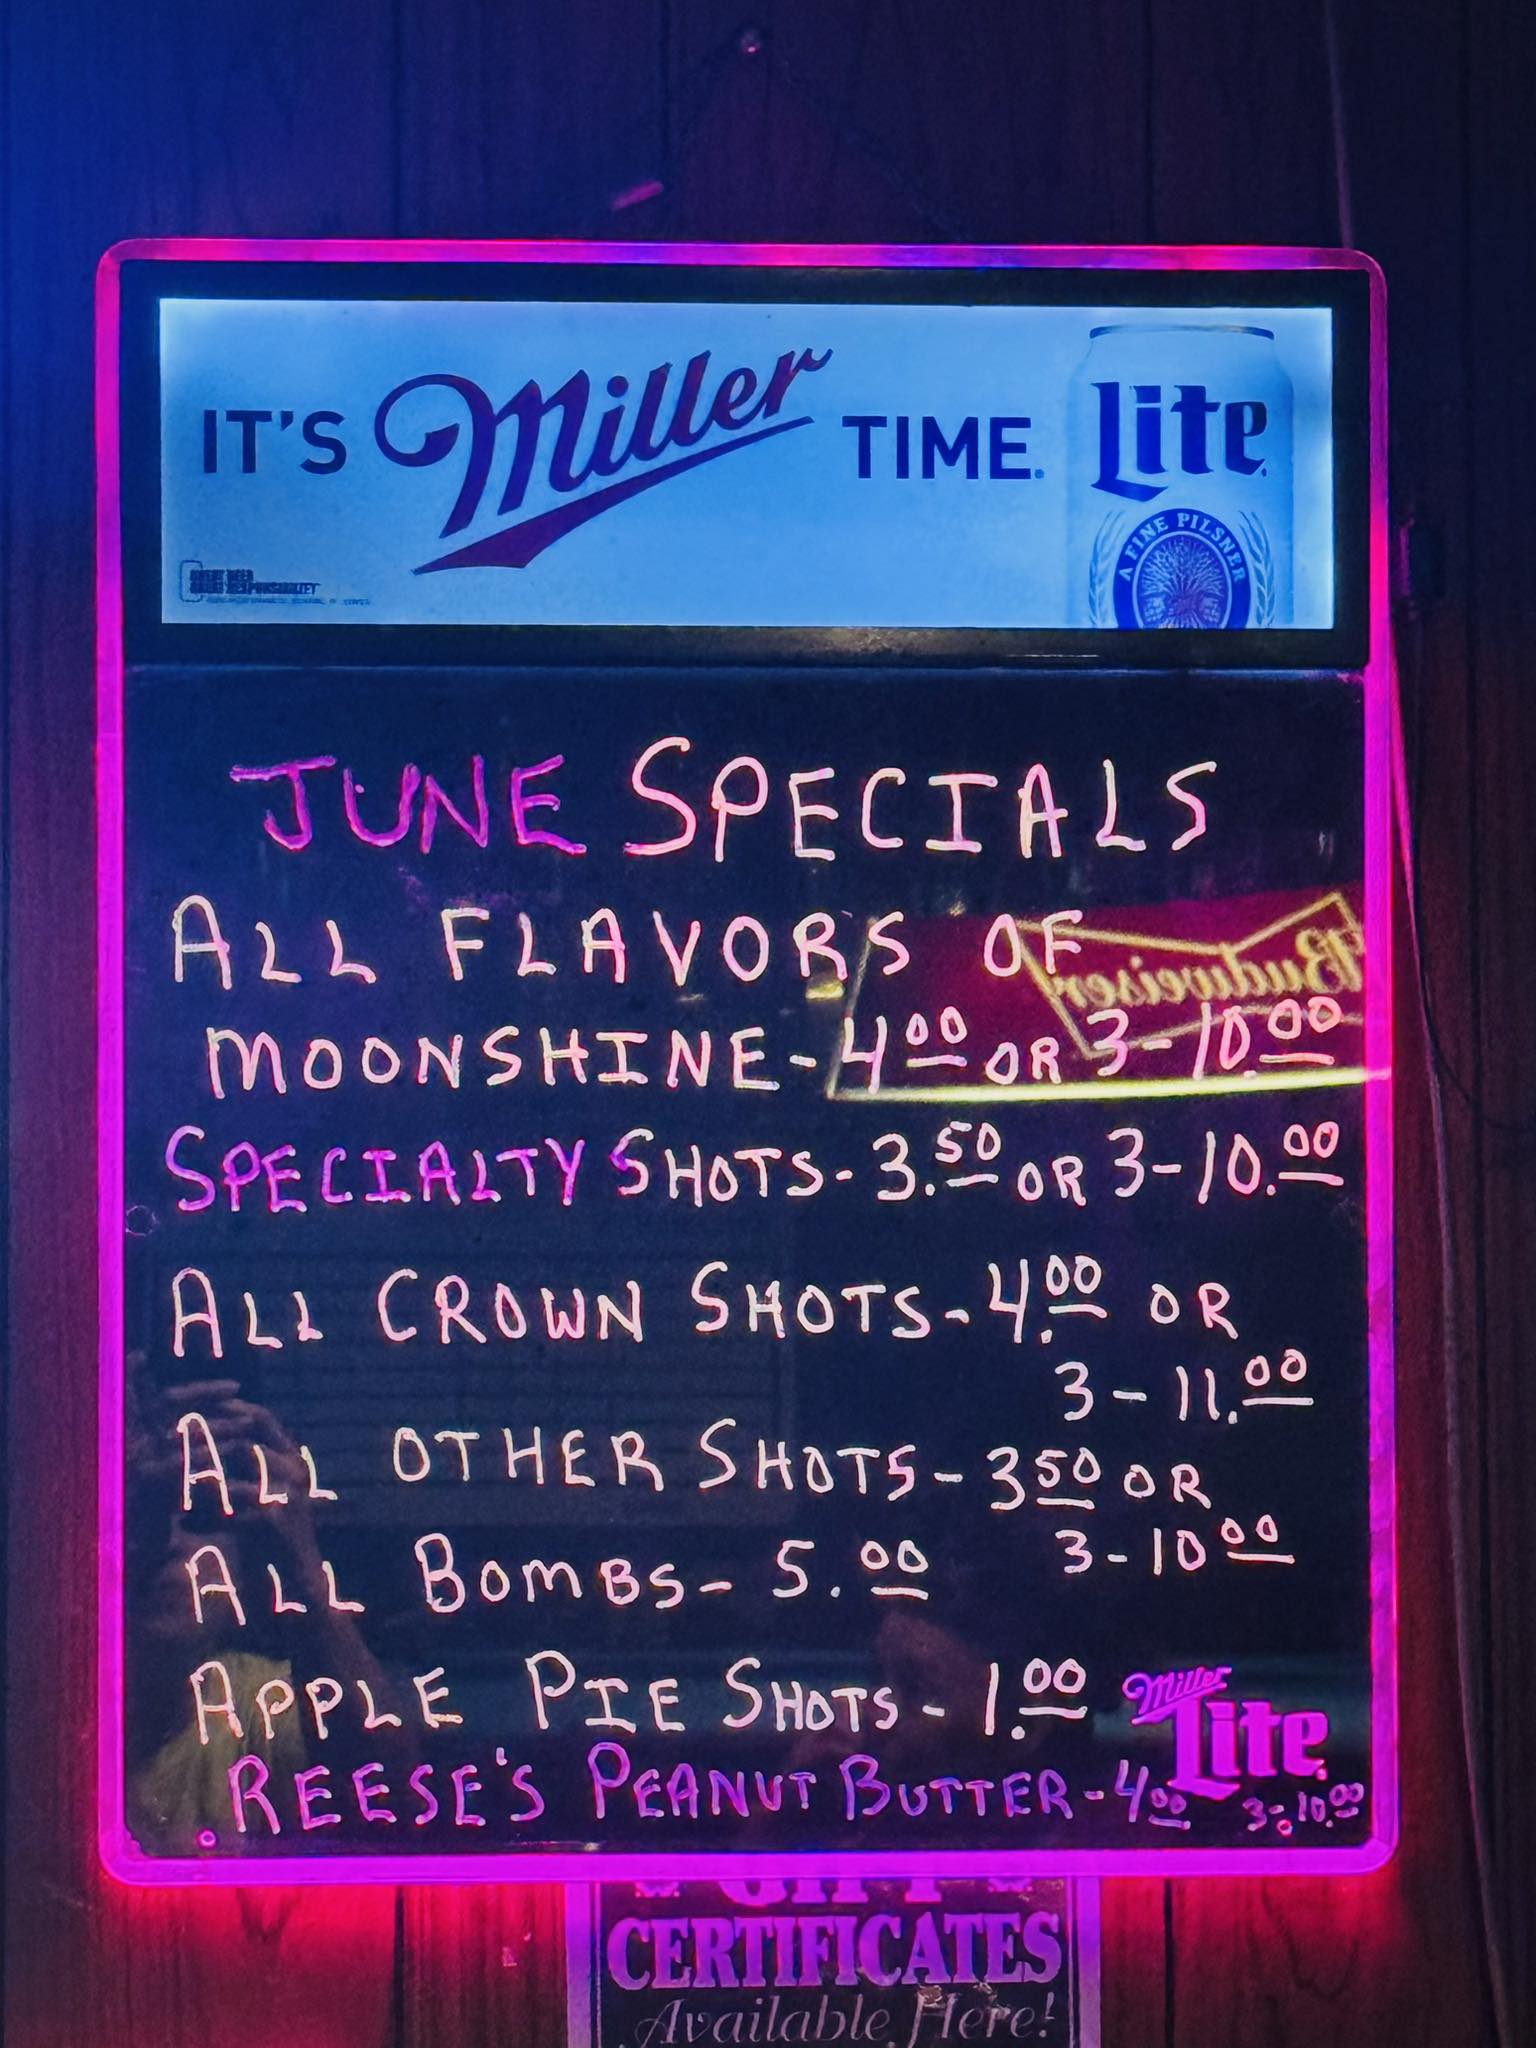 IT'S Miller TIME. Lite
A FINE PILSNER
JUNE SPECIALS
ALL FLAVORS OF
Budweiser
MOONSHINE - 4 00 OR 3 - 10.00
SPECIALTY SHOTS - 3.50 OR 3 - 10.00
ALL CROWN SHOTS - 4.00 OR
3 - 11.00
ALL OTHER SHOTS - 3 50 OR
3 - 10 00
ALL BOMBS - 5.00
APPLE PIE SHOTS - 1.00
Miller
Lite
REESE'S PEANUT BUTTER - 4 00 3 - 10.00
GIFT
CERTIFICATES
Available Here!